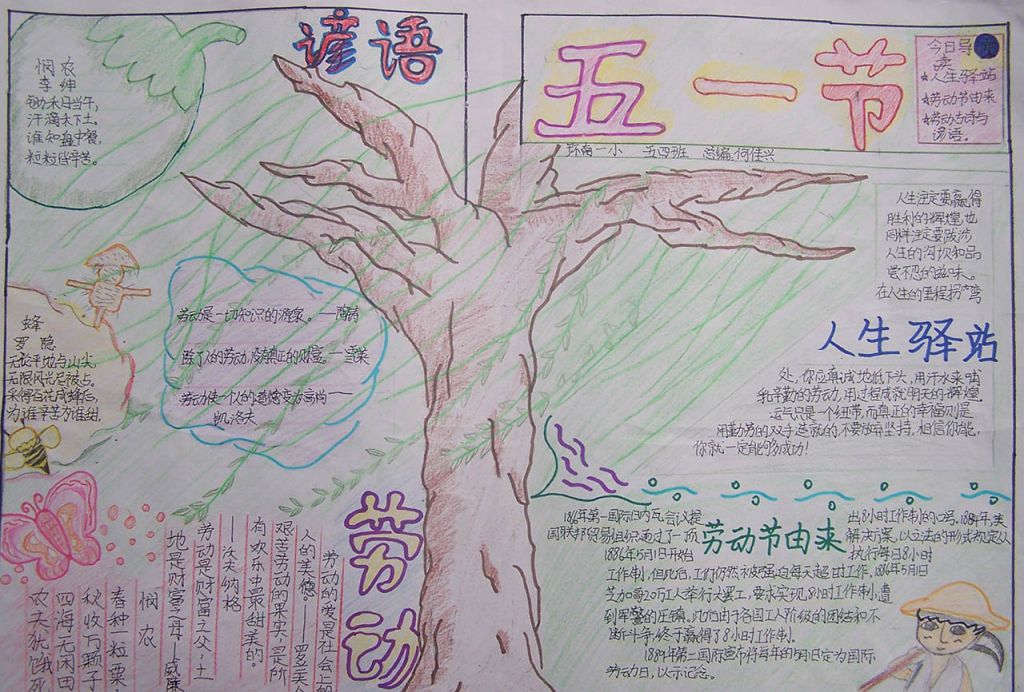 谚语
悯农
李绅
锄禾日当午,
汗滴禾下土。
谁知盘中餐,
粒粒皆辛苦。
五一节
今日导读
人生驿站
劳动节由来
劳动古诗与
谚语。
环南一小 五四班 总编:何佳兴
人生注定要赢得
胜利的辉煌,也
同样注定要跋涉
人生的沟坎和品
尝不忍的滋味。
在人生的里程拐弯
人生驿站
处,你应真诚地低下头,用汗水来哺
辛勤的劳动,用过程成就明天的辉煌
运气只是一个纽带,而真正的幸福则是
用勤劳的双手造就的,不要放弃坚持,相信你能,
你就一定能够成功!
蜂
罗隐
无论平地与山尖,
无限风光尽被占。
采得百花成蜜后,
为谁辛苦为谁甜。
劳动是一切知识的源泉。——陶铸
除了人的劳动,没有真正的财富。——雪莱
劳动使一个人的道德变为高尚——
凯洛夫
劳动
劳动的爱是社会上的
人的美德。——罗曼
艰苦劳动的果实,是所
有欢乐中最甜美的。
——沃夫纳格
劳动是财富之父,土
地是财富之母——威廉
悯农
春种一粒粟,
秋收万颗子
四海无闲田
农夫犹饿死
劳动节由来
1866年第一国际日内瓦会议提
出8小时工作制的口号。1884年,美
国联邦贸易组织通过了一项
解决方案,以立法的形式规定从
1886年5月1日开始
执行每日8小时
工作制,但此后,工们仍然被强迫每天超时工作,1886年5月1日
芝加哥20万工人举行大罢工,要求实现8小时工作制,遭
到军警的压镇。此后由于各国工人阶级的团结和不
断斗争,终于赢得了8小时工作制。
1889年第二国际宣布将每年的5月1日定为国际
劳动日,以示记念。